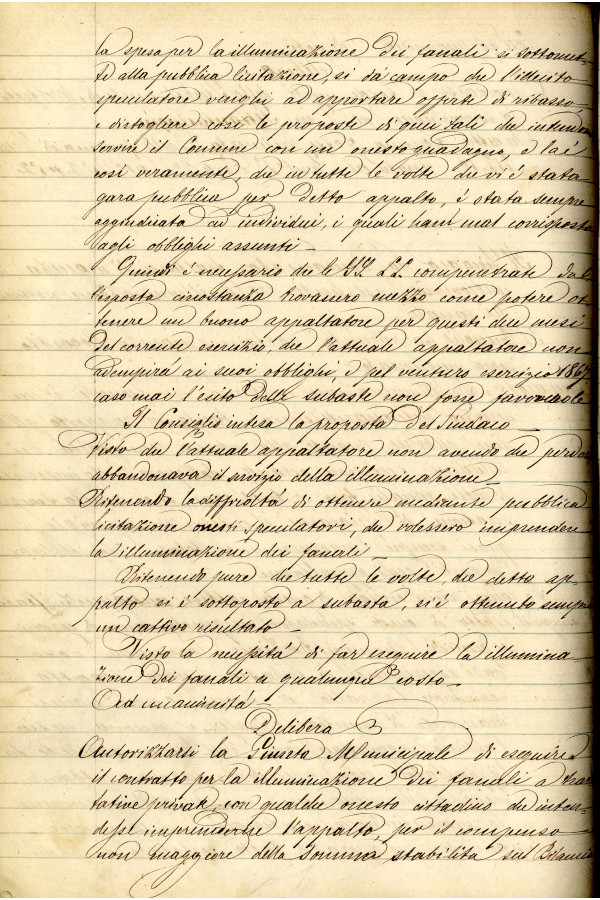 la spesa per la illuminazione dei fanali si sottomet-
te alla pubblica licitazione, si dà campo che l'illecito
speculatore venghi ad apportare offerte di ribasso
e distogliere così le proposte di quei tali che intendono
servire il Comune con un onesto guadagno, e la è
così veramente, che in tutte le volte che vi è stata
gara pubblica per detto appalto, è stata sempre
aggiudicata ad individui, i quali han mal corrisposto
agli obblighi assunti _
Quindi è necessario che le SS. LL. compenetrate dal-
l'esposta circostanza trovassero mezzo come potere ot-
tenere un buono appaltatore per questi due mesi
del corrente esercizio, che l'attuale appaltatore non
adempirà ai suoi obblighi, e pel venturo esercizio 1867
caso mai l'esito delle subaste non fosse favorevole
Il Consiglio intesa la proposta del Sindaco _
Visto che l'attuale appaltatore non avendo che perdere
abbandonava il servizio della illuminazione _
Ritenendo la difficoltà di ottenere mediante pubblica
licitazione onesti speculatori, che volessero imprendere
la illuminazione dei fanali _
Ritenendo pure che tutte le volte, che detto ap-
palto si è sottoposto a subasta, si è ottenuto sempre
un cattivo risultato _
Visto la necessità di far eseguire la illumina-
zione dei fanali a qualunque costo _
Ad unanimità _
Delibera
Autorizzarsi la Giunta Municipale di eseguire
il contratto per la illuminazione dei fanali a trat-
tative private, con qualche onesto cittadino che inten-
desse imprenderne l'appalto, per il compenso
non maggiore della somma stabilita sul Bilancio